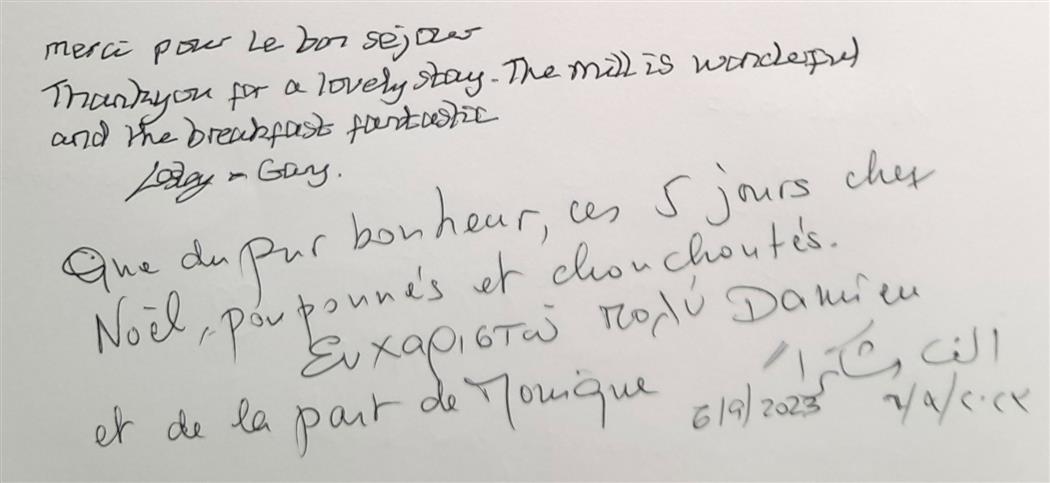 merci pour le bon séjour
Thankyou for a lovely stay. The mill is wonderful
and the breakfast fantastic
Gary.
Que du pur bonheur, ces 5 jours chez
Noël, pouponnés et chouchoutés.
Ευχαριστώ πολύ Damien
et de la part de Monique
الف شكرا
6/9/2023 ٦/٩/٢٠٢٣